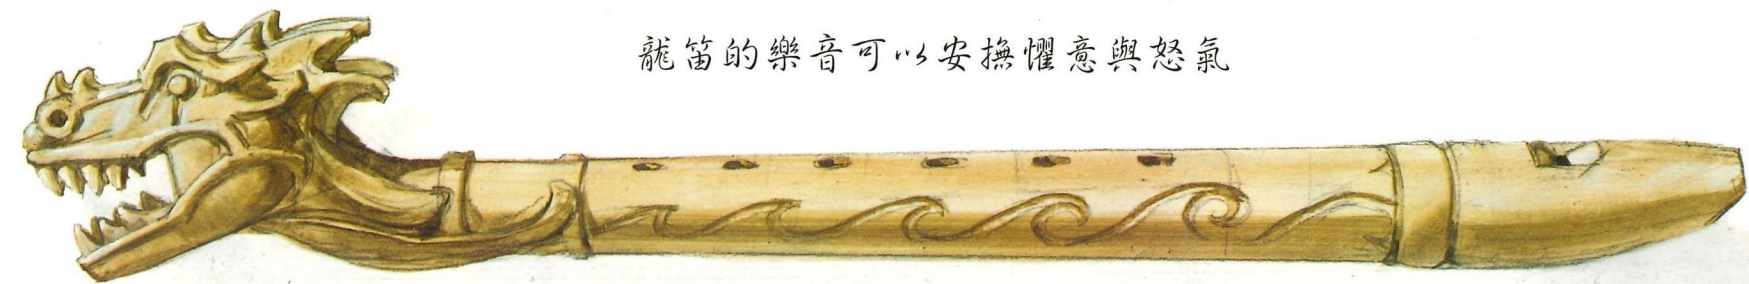 龍笛的樂音可以安撫懼意與怒氣